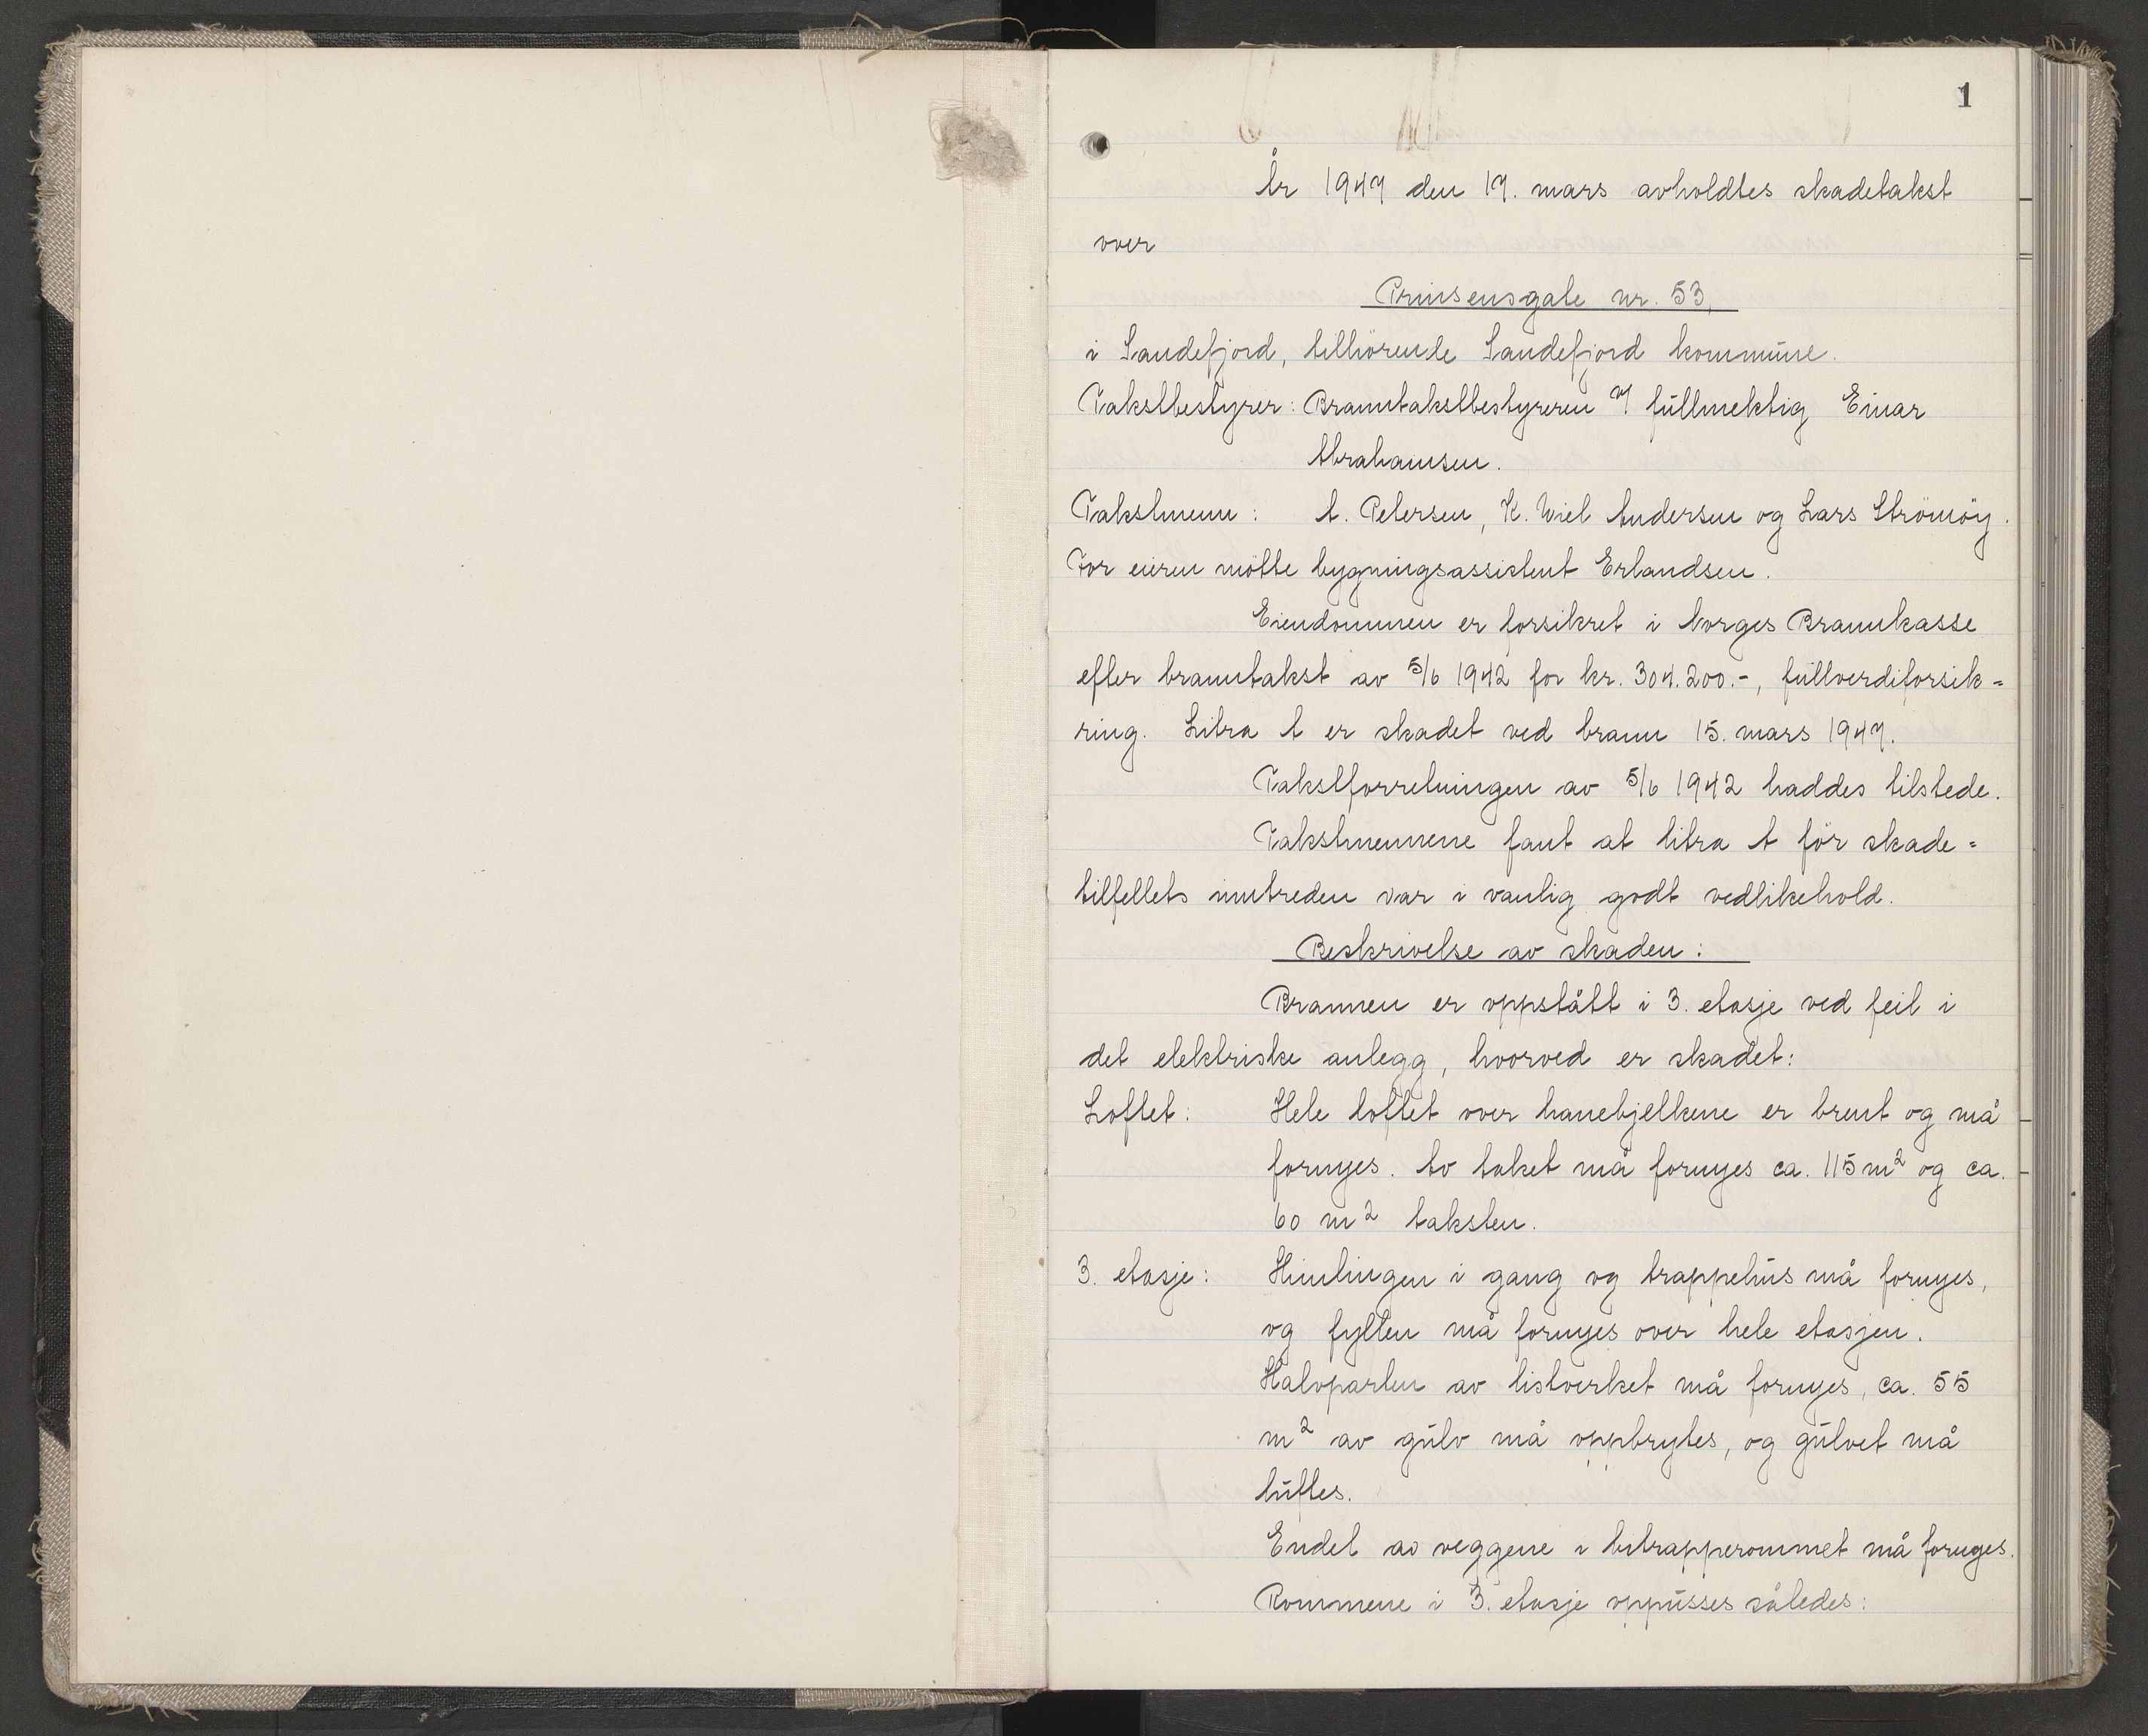 1
År 1947 den 17. mars avholdtes skadetakst
over
Prinsensgate nr. 53,
i Sandefjord, tilhörende Sandefjord kommune.
Takstbestyrer: Branntakstbestyreren v/ fullmektig Einar
Abrahamsen.
Takstmenn: A. Petersen, K. Wiel Andersen og Lars Strömöy.
For eieren mötte bygningsassistent Erlandsen.
Eiendommen er forsikret i Norges Brannkasse
efter branntakst av 5/6 1942 for kr. 304.200.-, fullverdiforsik=
ring. Litra A er skadet ved brann 15. mars 1947.
Takstforretningen av 5/6 1942 haddes tilstede.
Takstmennene fant at litra A för skade=
tilfellets inntreden var i vanlig godt vedlikehold.
Beskrivelse av skaden:
Brannen er oppstått i 3. etasje ved feil i
det elektriske anlegg, hvorved er skadet:
Loftet: Hele loftet over hanebjelkene er brent og må
fornyes. Av taket må fornyes ca. 115 m² og ca.
60 m² taksten.
3. etasje: Himlingen i gang og trappehus må fornyes,
og fyllen må fornyes over hele etasjen.
Halvparten av listverket må fornyes, ca. 55
m² av gulv må oppbrytes, og gulvet må
luftes.
Endel av veggene i bitrapperommet må fornyes.
Rommene i 3. etasje oppusses således: